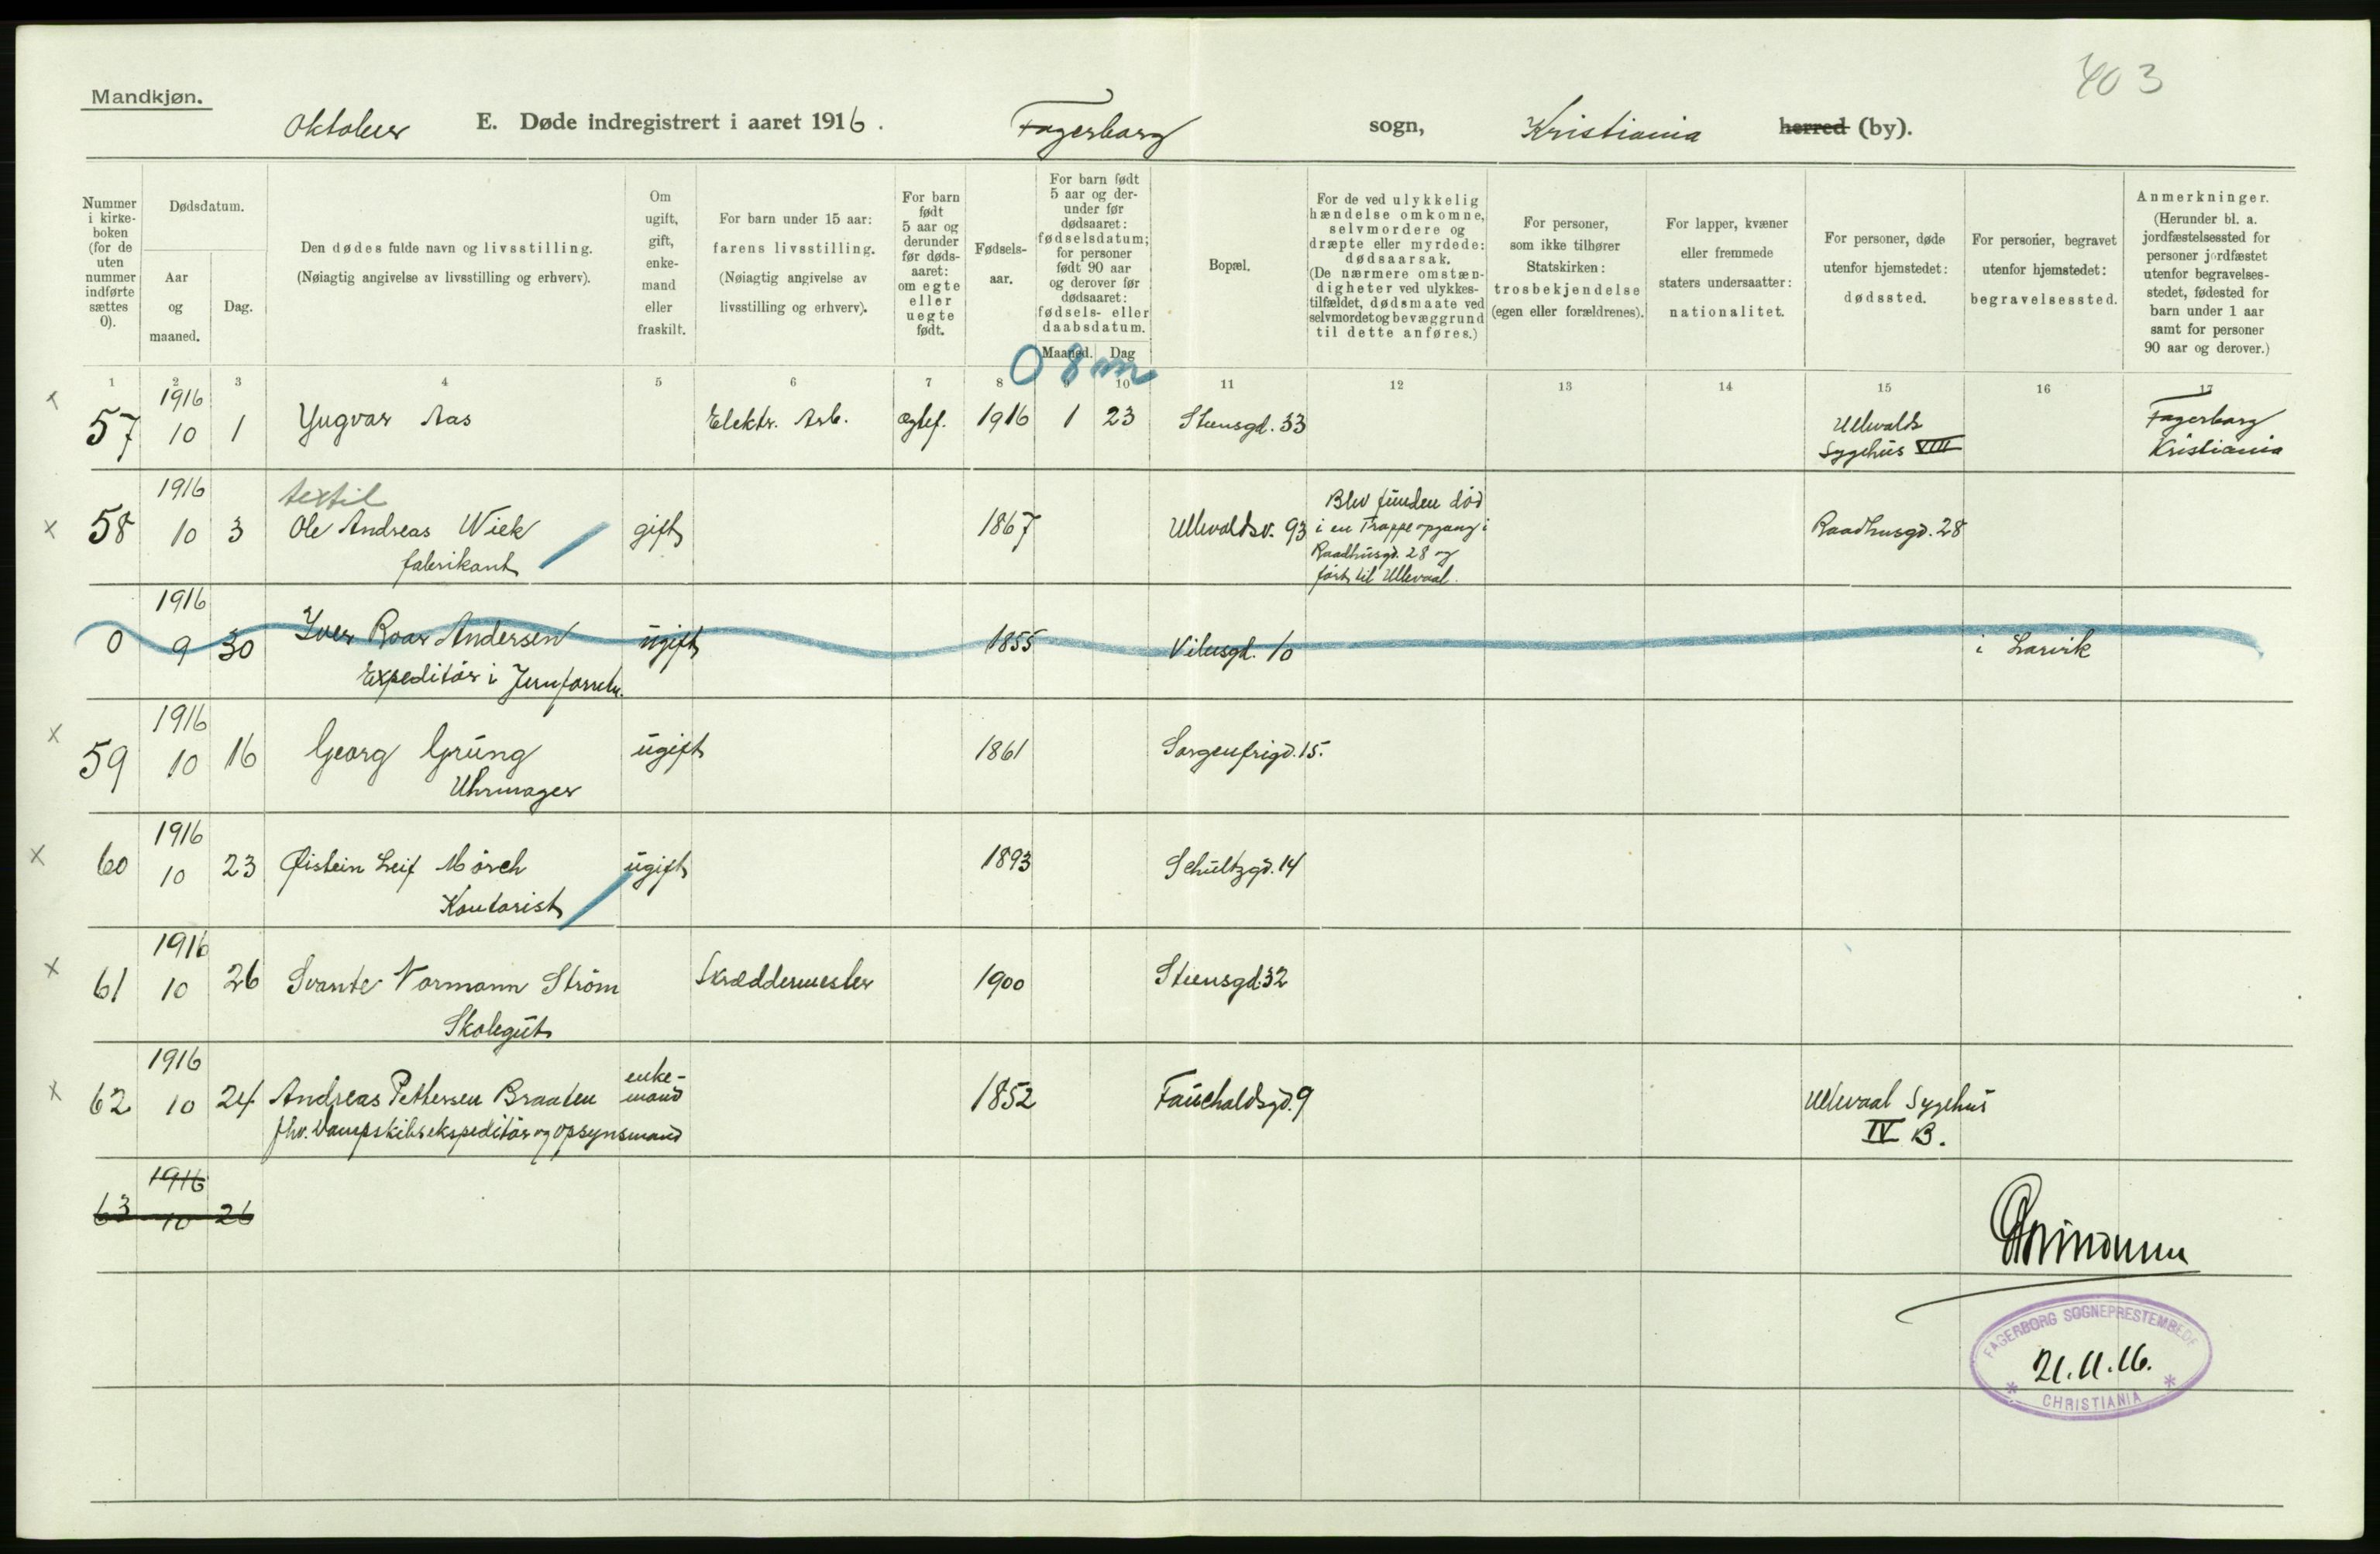 403
Mandkjøn.
Oktober E. Døde indregistrert i aaret 1916. Fagerborg sogn, Kristiania herred (by).
Nummer i kirke-boken (for de uten nummer indførte sættes 0).
Dødsdatum.
Aar og maaned.
Dag.
Den dødes fulde navn og livsstilling.
(Nøiagtig angivelse av livsstilling og erhverv).
Om ugift, gift, enke-mand eller fraskilt.
For barn under 15 aar: farens livsstilling.
(Nøiagtig angivelse av livsstilling og erhverv).
For barn født 5 aar og derunder før døds-aaret: om egte eller uegte født.
Fødsels-aar.
For barn født 5 aar og der-under før dødsaaret: fødselsdatum; for personer født 90 aar og derover før dødsaaret: fødsels- eller daabsdatum.
Maaned. Dag
Bopæl.
For de ved ulykkelig hændelse omkomne, selvmordere og dræpte eller myrdede: dødsaarsak.
(De nærmere omstæn-digheter ved ulykkes-tilfældet, dødsmaate ved selvmordet og bevæggrund til dette anføres.)
For personer, som ikke tilhører Statskirken: trosbekjendelse (egen eller forældrenes).
For lapper, kvæner eller fremmede staters undersaatter: nationalitet.
For personer, døde utenfor hjemstedet: dødssted.
For personer, begravet utenfor hjemstedet: begravelsessted.
Anmerkninger.
(Herunder bl. a. jordfæstelsessted for personer jordfæstet utenfor begravelses-stedet, fødested for barn under 1 aar samt for personer 90 aar og derover.)
0 8 m
1 2 3 4 5 6 7 8 9 10 11 12 13 14 15 16 17
x 57 1916 10 1 Yngvar Aas Elektr. Arb. Egtef. 1916 1 23 Stensgd. 33 Ullevolds Sygehus VIII Fagerborg Kristiania
textil
x 58 1916 10 3 Ole Andreas Wiek gift 1867 Ullevoldsv. 93 Blev funden død
fabrikant i en Trappeopgang i Raadhusgd. 28
Raadhusgd. 28 og
ført til Ullevaal.
0 1916 9 30 Iver Roar Andersen ugift 1855 Vibesgd. 10 i Larvik
Expeditør i Jernforretn.
x 59 1916 10 16 Georg Grüng ugift 1861 Sorgenfrigd. 15.
Uhrmager
x 60 1916 10 23 Øistein Leif Mörch ugift 1893 Schultzgd. 14
Kontorist
x 61 1916 10 26 Svante Normann Ström Skræddermester 1900 Stensgd. 32
Skolegut
x 62 1916 10 24 Andreas Pettersen Braaten enke-mand 1852 Fauchaldsgd. 9 Ullevaal Sygehus
fhv. Dampskibsekspeditør og opsynsmand IV B.
63 1916 10 26
FAGERBORG SOGNEPRESTEMBEDE
21.11.16.
* CHRISTIANIA *